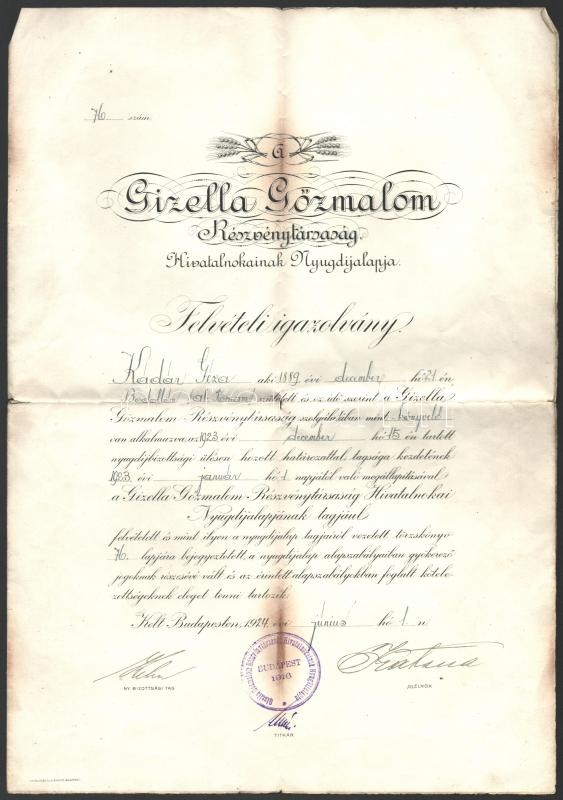 76. szám
A
Gizella Gőzmalom
Részvénytársaság.
Hivatalnokainak Nyugdijalapja.
Felvételi igazolvány.
Kádár Géza aki 1889 évi december hó 21 én
született és ez idő szerint a Gizella
Gőzmalom Részvénytársaság szolgálatában mint könyvelő
van alkalmazva, az 1923 évi december hó 15 én tartott
nyugdijbizottsági ülésen hozott határozattal tagsága kezdetének
1923 évi január hó 1 napjától való megállapitásával
a Gizella Gőzmalom Részvénytársaság Hivatalnokai
Nyugdijalapjának tagjául
felvétetett és mint ilyen a nyugdijalap tagjairól vezetett törzskönyv
76. lapjára bejegyeztetett, a nyugdijalap alapszabályaiban gyökerező
jogoknak részesévé vált és az érintett alapszabályokban foglalt kötele-
zettségeknek eleget tenni tartozik.
Kelt Budapesten, 1924 évi június hó 1-n
BUDAPEST
1916
NY. BIZOTTSÁGI TAG
ELNÖK
TITKÁR